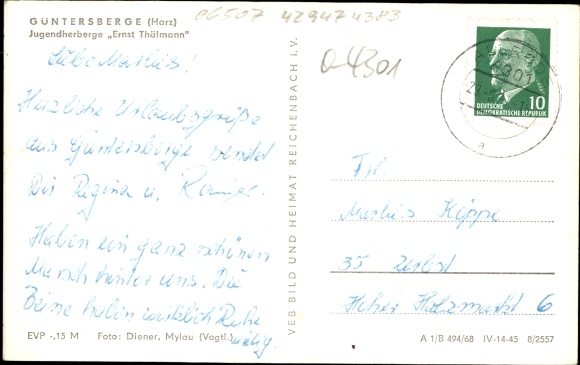 GÜNTERSBERGE (Harz)
Jugendherberge „Ernst Thälmann"
06507 42947 4383
0-4301
Liebe Marlies!
Herzliche Urlaubsgrüße
aus Güntersberge sendet
Dir Regina u. Rainer.
Haben ein ganz schönen
Marsch hinter uns. Die
Beine haben wirklich Ruhe
nötig.
EVP -,15 M Foto: Diener, Mylau (Vogtl.)
VEB BILD UND HEIMAT REICHENBACH i. V.
4301
a
10
DEUTSCHE
DEMOKRATISCHE REPUBLIK
Frl.
Marlies Köppe
35 Zerbst
Hoher Holzmarkt 6
A 1/B 494/68 IV-14-45 8/2557